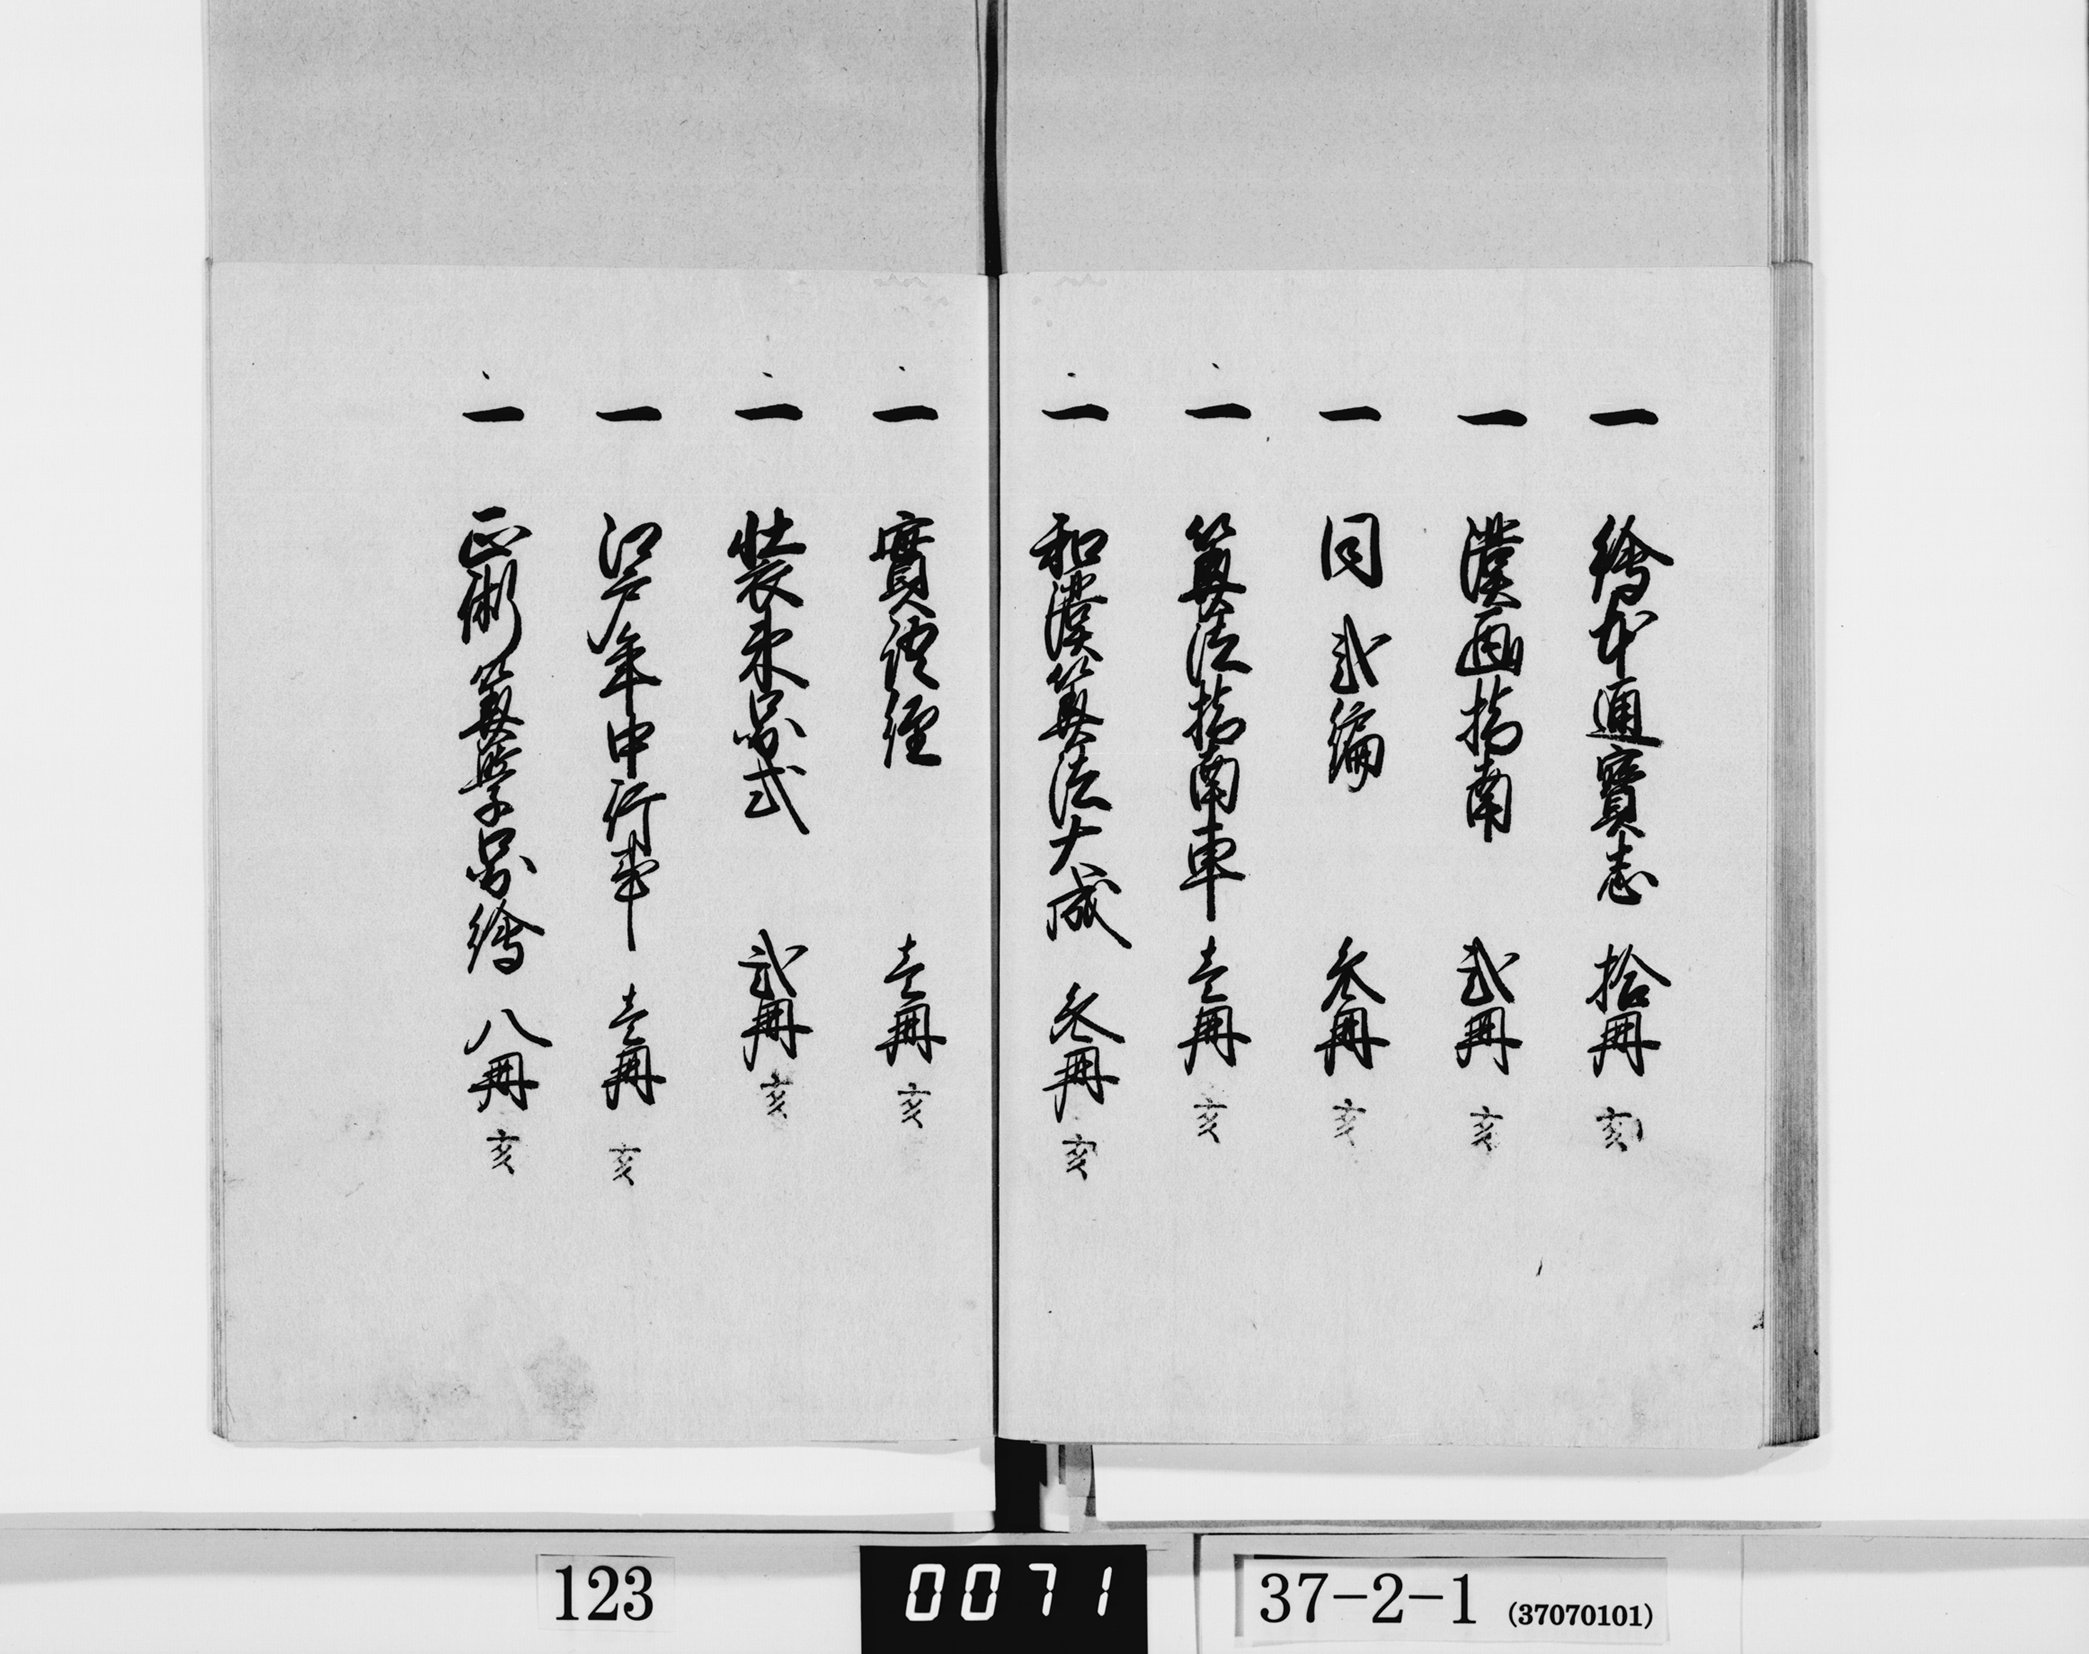 一 繪本通寳志 拾冊 亥
一 漢画指南 弐冊 亥
一 同 弐編 参冊 亥
一 筭法指南車 壱冊 亥
一 和漢筭法大成 参冊 亥
一 寳諺經 壱冊 亥
一 装束図式 弐冊 亥
一 江戸年中行事 壱冊 亥
一 正術筭学図繪 八冊 亥
123
0071
37-2-1 (37070101)